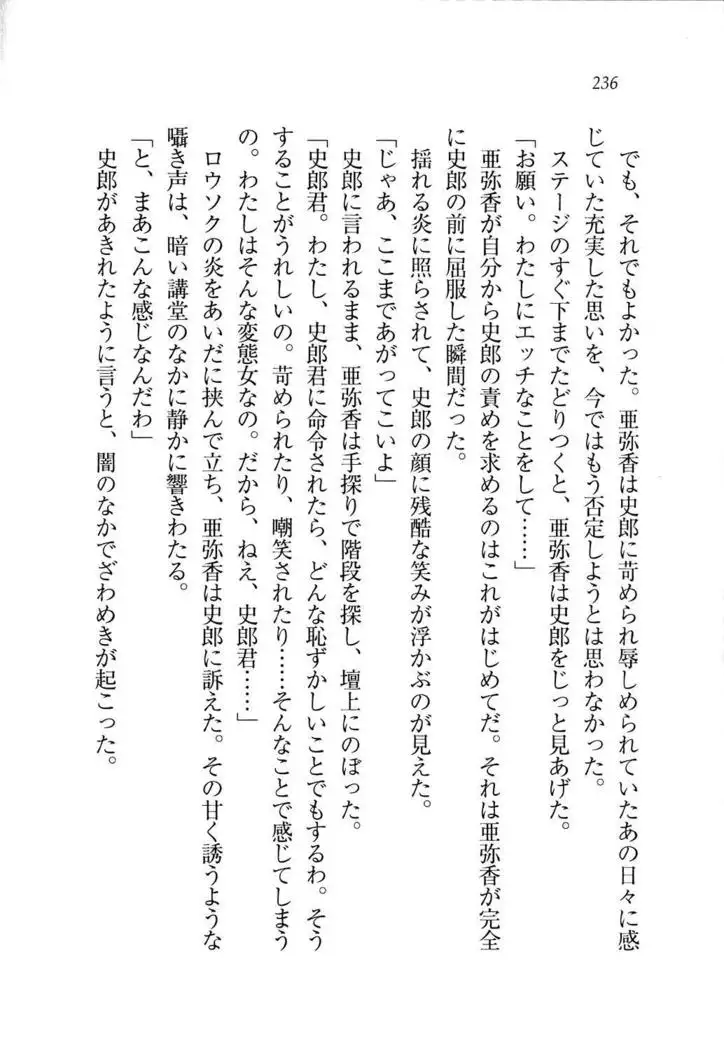 236
でも、それでもよかった。亜弥香は史郎に苛められ辱しめられていたあの日々に感
じていた充実した思いを、今ではもう否定しようとは思わなかった。
ステージのすぐ下までたどりつくと、亜弥香は史郎をじっと見あげた。
「お願い。わたしにエッチなことをして……」
亜弥香が自分から史郎の責めを求めるのはこれがはじめてだ。それは亜弥香が完全
に史郎の前に屈服した瞬間だった。
揺れる炎に照らされて、史郎の顔に残酷な笑みが浮かぶのが見えた。
「じゃあ、ここまであがってこいよ」
史郎に言われるまま、亜弥香は手探りで階段を探し、壇上にのぼった。
「史郎君。わたし、史郎君に命令されたら、どんな恥ずかしいことでもするわ。そう
することがうれしいの。苛められたり、嘲笑されたり……そんなことで感じてしまう
の。わたしはそんな変態女なの。だから、ねえ、史郎君……」
ロウソクの炎をあいだに挟んで立ち、亜弥香は史郎に訴えた。その甘く誘うような
囁き声は、暗い講堂のなかに静かに響きわたる。
「と、まあこんな感じなんだわ」
史郎があきれたように言うと、闇のなかでざわめきが起こった。